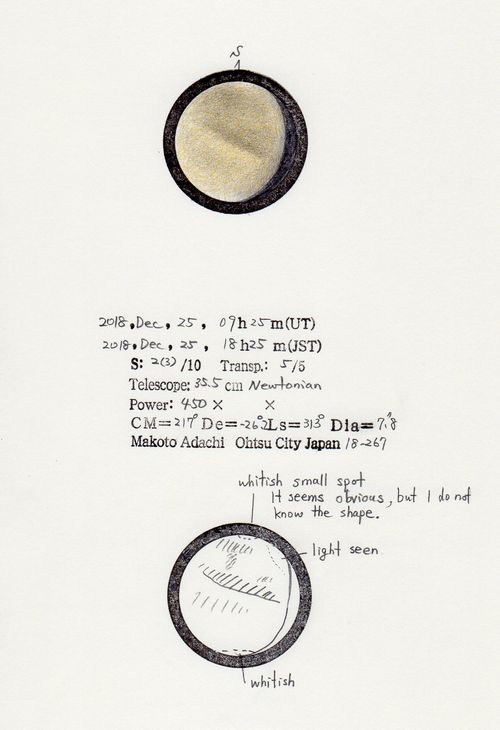 S
2018, Dec, 25, 09h25m(UT)
2018, Dec, 25, 18h25m(JST)
S: 2(3)/10 Transp.: 5/5
Telescope: 35.5cm Newtonian
Power: 450× ×
CM=217° De=-26.2° Ls=313° Dia=7.8"
Makoto Adachi Ohtsu City Japan 18-267
whitish small spot
It seems obvious, but I do not
know the shape.
light seen
whitish